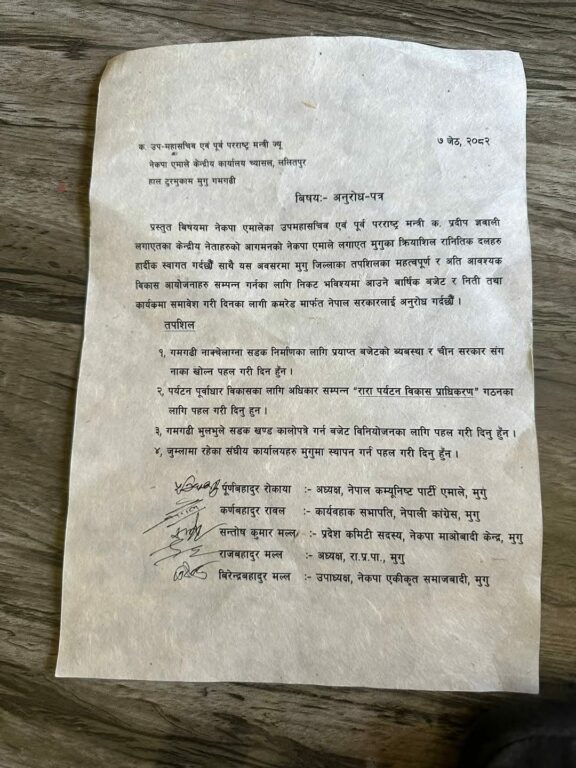 ७ जेठ, २०८२
क. उप-महासचिव एवं पूर्व परराष्ट्र मन्त्री ज्यू
नेकपा एमाले केन्द्रीय कार्यालय च्यासल, ललितपुर
हाल टुरमुकाम मुगु गमगढी
बिषय:- अनुरोध-पत्र
प्रस्तुत बिषयमा नेकपा एमालेका उपमहासचिव एवं पूर्व परराष्ट्र मन्त्री क. प्रदीप ज्ञवाली
लगाएतका केन्द्रीय नेताहरुको आगमनको नेकपा एमाले लगाएत मुगुका क्रियाशिल रानितिक दलहरु
हार्दीक स्वागत गर्दछौं साथै यस अवसरमा मुगु जिल्लाका तपशिलका महत्वपूर्ण र अति आवश्यक
बिकास आयोजनाहरु सम्पन्न गर्नका लागि निकट भविश्यमा आउने बार्षिक बजेट र निती तथा
कार्यकमा समावेश गरी दिनका लागी कमरेड मार्फत नेपाल सरकारलाई अनुरोध गर्दछौं ।
तपशिल
१, गमगढी नाक्चेलाग्ना सडक निर्माणका लागि प्रयाप्त बजेटको ब्यवस्था र चीन सरकार संग
नाका खोल्न पहल गरी दिन हुँन ।
२, पर्यटन पूर्वाधार बिकासका लागि अधिकार सम्पन्न "रारा पर्यटन विकास प्राधिकरण" गठनका
लागि पहल गरी दिनु हुन ।
३, गमगढी भुलभुले सडक खण्ड कालोपत्रे गर्न बजेट विनियोजनका लागि पहल गरी दिनु हुँन ।
४, जुम्लामा रहेका संघीय कार्यालयहरु मुगुमा स्थापन गर्न पहल गरी दिनु हुँन ।
पूर्णबहादुर रोकाया :- अध्यक्ष, नेपाल कम्युनिष्ट पार्टी एमाले, मुगु
कर्णबहादुर रावल :- कार्यवहाक सभापति, नेपाली कांग्रेस, मुगु
सन्तोष कुमार मल्ल :- प्रदेश कमिटी सदस्य, नेकपा माओबादी केन्द्र, मुगु
राजबहादुर मल्ल :- अध्यक्ष, रा.प्र.पा., मुगु
बिरेन्द्रबहादुर मल्ल :- उपाध्यक्ष, नेकपा एकीकृत समाजबादी, मुगु